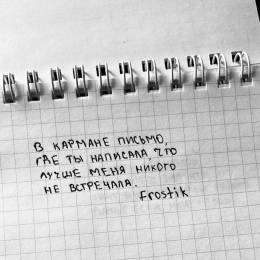 В КАРМАНЕ ПИСЬМО,
ГДЕ ТЫ НАПИСАЛА, ЧТО
ЛУЧШЕ МЕНЯ НИКОГО
НЕ ВСТРЕЧАЛА.
frostik